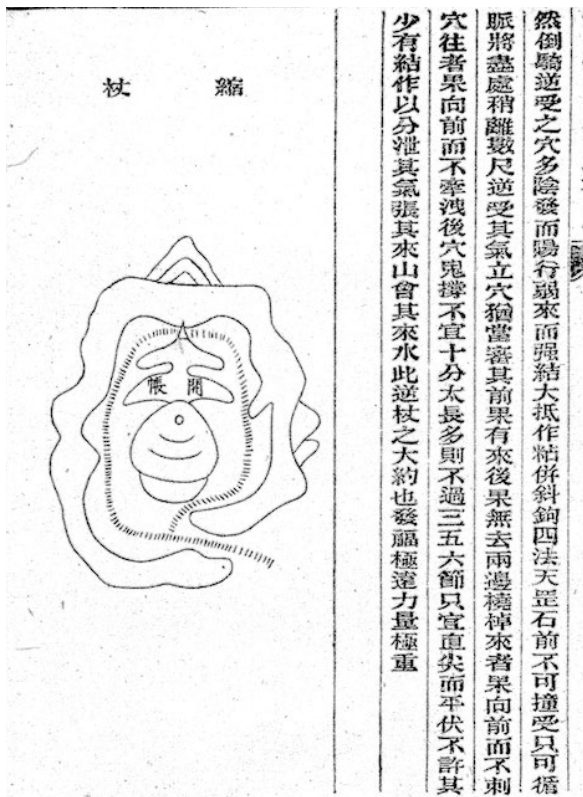 然倒騎逆受之穴多陰發而陽行弱來而强結大抵作粘併斜鉤四法天罡石前不可撞受只可循
脈將盡處稍離數尺逆受其氣立穴猶當審其前果有來後果無去兩邊橈棹來者果向前而不刺
穴往者果向前而不牽洩後穴鬼撐不宜十分太長多則不過三五六節只宜直尖而平伏不許其
少有結作以分泄其氣張其來山會其來水此逆杖之大約也發福極遠力量極重
縮杖
開帳